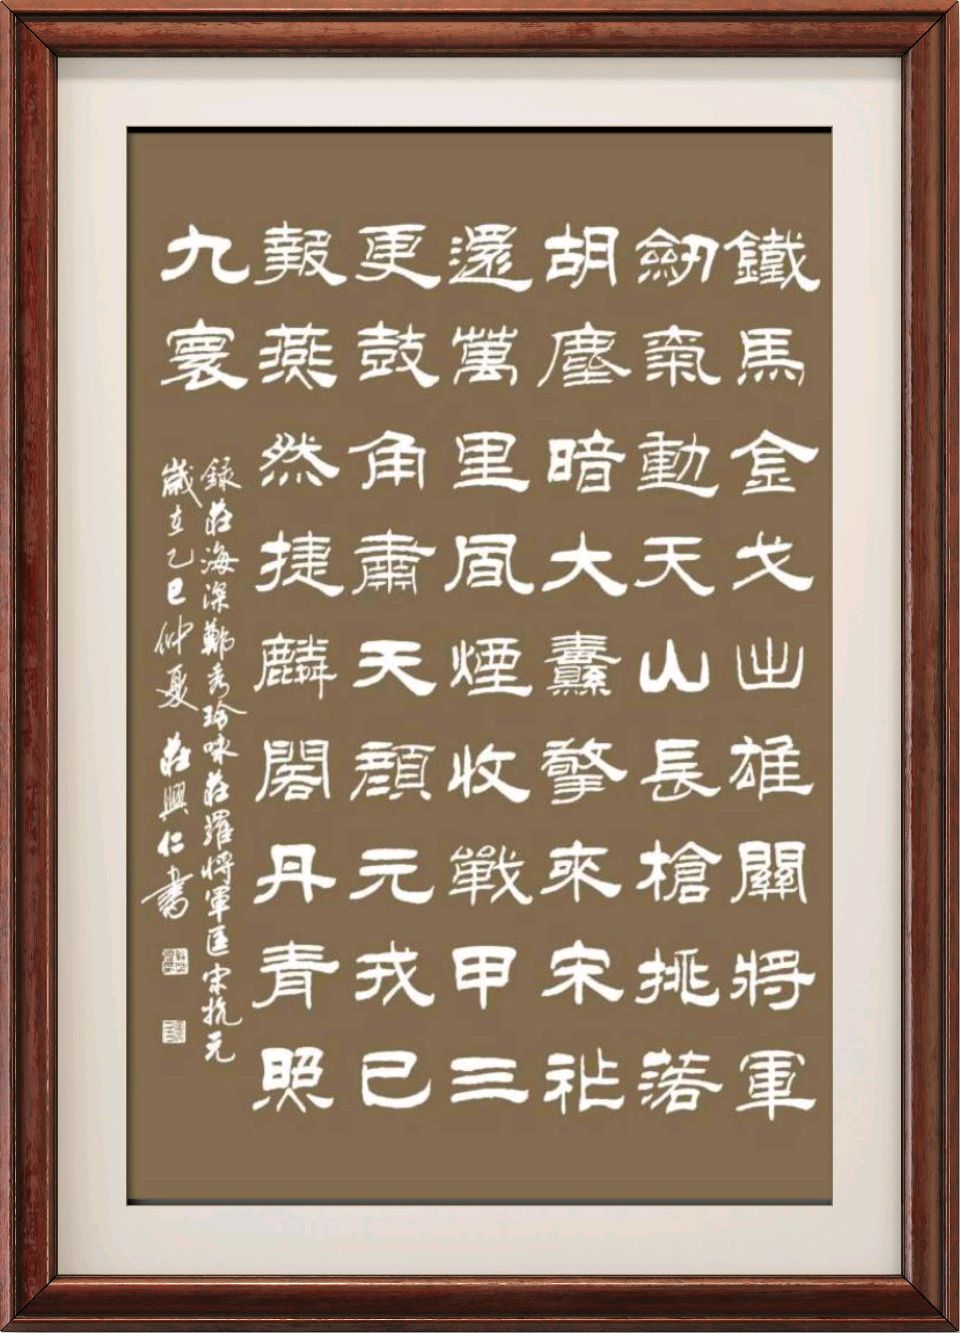 鐵馬金戈出雄關將軍
劒氣動天山長槍挑落
胡塵暗大纛擎來宋祚
還萬里風煙收戰甲三
更鼓角肅天顔元戎已
報燕然捷麟閣丹青照
九寰
録莊海深鄭秀珍咏莊羅將軍匡宋抗元
歲在乙巳仲夏莊興仁書